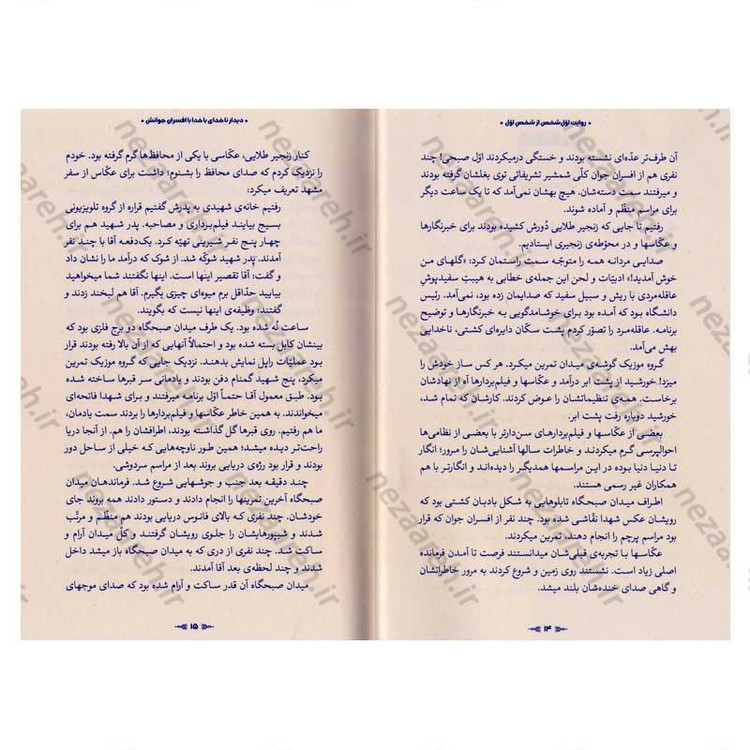 • روایت اوّل‌شخص از شخص اوّل •
آن طرف‌تر عدّه‌ای نشسته بودند و خستگی درمیکردند اوّل صبحی! چند
نفری هم از افسران جوان کلّی شمشیر تشریفاتی توی بغلشان گرفته بودند
و میرفتند سمت دسته‌شان. هیچ بهشان نمی‌آمد که تا یک ساعت دیگر
برای مراسم منظّم و آماده شوند.
رفتیم تا جایی که زنجیر طلایی دُورش کشیده بودند برای خبرنگارها
و عکّاسها و در محوّطه‌ی زنجیری ایستادیم.
صدایی مردانه همه را متوجّه سمت راستمان کرد: «گلهای من
خوش آمدید!» ادبیّات و لحن این جمله‌ی خطابی به هیبتِ سفیدپوشِ
عاقله‌مردی با ریش و سبیل سفید که صدایمان زده بود، نمی‌آمد. رئیس
دانشگاه بود که آمده بود برای خوشامدگویی به خبرنگارها و توضیح
برنامه. عاقله‌مرد را تصوّر کردم پشت سکّان دایره‌ای کشتی، ناخدایی
بهش می‌آمد.
گروه موزیک گوشه‌ی میدان تمرین میکرد. هر کس ساز خودش را
میزد! خورشید از پشت ابر درآمد و عکّاسها و فیلم‌بردارها آه از نهادشان
برخاست. همه‌ی تنظیماتشان را عوض کردند. کارشان که تمام شد،
خورشید دوباره رفت پشت ابر.
بعضی از عکّاسها و فیلم‌بردارهای سن‌دارتر با بعضی از نظامی‌ها
احوالپرسی گرم میکردند و خاطرات سالها آشنایی‌شان را مرور؛ انگار
تا دنیا دنیا بوده در این مراسمها همدیگر را دیده‌اند و انگارتر با هم
همکاران غیر رسمی هستند.
اطراف میدان صبحگاه تابلوهایی به شکل بادبان کشتی بود که
رویشان عکس شهدا نقّاشی شده بود. چند نفر از افسران جوان که قرار
بود مراسم پرچم را انجام دهند، تمرین میکردند.
عکّاسها با تجربه‌ی قبلی‌شان میدانستند فرصت تا آمدن فرمانده
اصلی زیاد است. نشستند روی زمین و شروع کردند به مرور خاطراتشان
و گاهی صدای خنده‌شان بلند میشد.
۱۴
• دیدار ناخدای با خدا با افسران جوانش •
کنار زنجیر طلایی، عکّاسی با یکی از محافظها گرم گرفته بود. خودم
را نزدیک کردم که صدای محافظ را بشنرم؛ داشت برای عکّاس از سفر
مشهد تعریف میکرد:
رفتیم خانه‌ی شهیدی به پدرش گفتیم قراره از گروه تلویزیونی
بسیج بیایند فیلم‌برداری و مصاحبه. پدر شهید هم برای
چهار پنج نفر شیرینی تهیّه کرد. یک‌دفعه آقا با چند نفر
آمدند. پدر شهید شوکّه شد. از شوک که درآمد ما را نشان داد
و گفت: آقا تقصیر اینها است. اینها نگفتند شما میخواهید
بیایید حدّاقل برم میوه‌ای چیزی بگیرم. آقا هم لبخند زدند و
گفتند: وظیفه‌ی اینها نیست که بگویند.
ساعت نُه شده بود. یک طرف میدان صبحگاه دو برج فلزی بود که
بینشان کابل بسته شده بود و احتمالاً آنهایی که از آن بالا رفته بودند قرار
بود عملیّات راپل نمایش بدهند. نزدیک جایی که گروه موزیک تمرین
میکرد، پنج شهید گمنام دفن بودند و یادمانی سر قبرها ساخته شده
بود. طبق معمول آقا حتماً اوّل برنامه میرفتند و برای شهدا فاتحه‌ای
میخواندند. به همین خاطر عکّاسها و فیلم‌بردارها را بردند سمت یادمان،
ما هم رفتیم. روی قبرها گل گذاشته بودند، اطرافشان را هم. از آنجا دریا
راحت‌تر دیده میشد؛ همین طور ناوچه‌هایی که خیلی از ساحل دور
بودند و قرار بود رژه‌ی دریایی بروند بعد از مراسم سردوشی.
چند دقیقه بعد جنب و جوشهایی شروع شد. فرمانده‌هان میدان
صبحگاه آخرین تمرینها را انجام دادند و دستور دادند همه بروند جای
خودشان. چند نفری که بالای فانوس دریایی بودند هم منظّم و مرتّب
شدند و شیپورهایشان را جلوی رویشان گرفتند و کلّ میدان آرام و
ساکت شد. چند نفری از دری که به میدان صبحگاه باز میشد داخل
شدند و چند لحظه‌ی بعد آقا آمدند.
میدان صبحگاه آن قدر ساکت و آرام شده بود که صدای موجهای
۱۵
nezaareh.ir